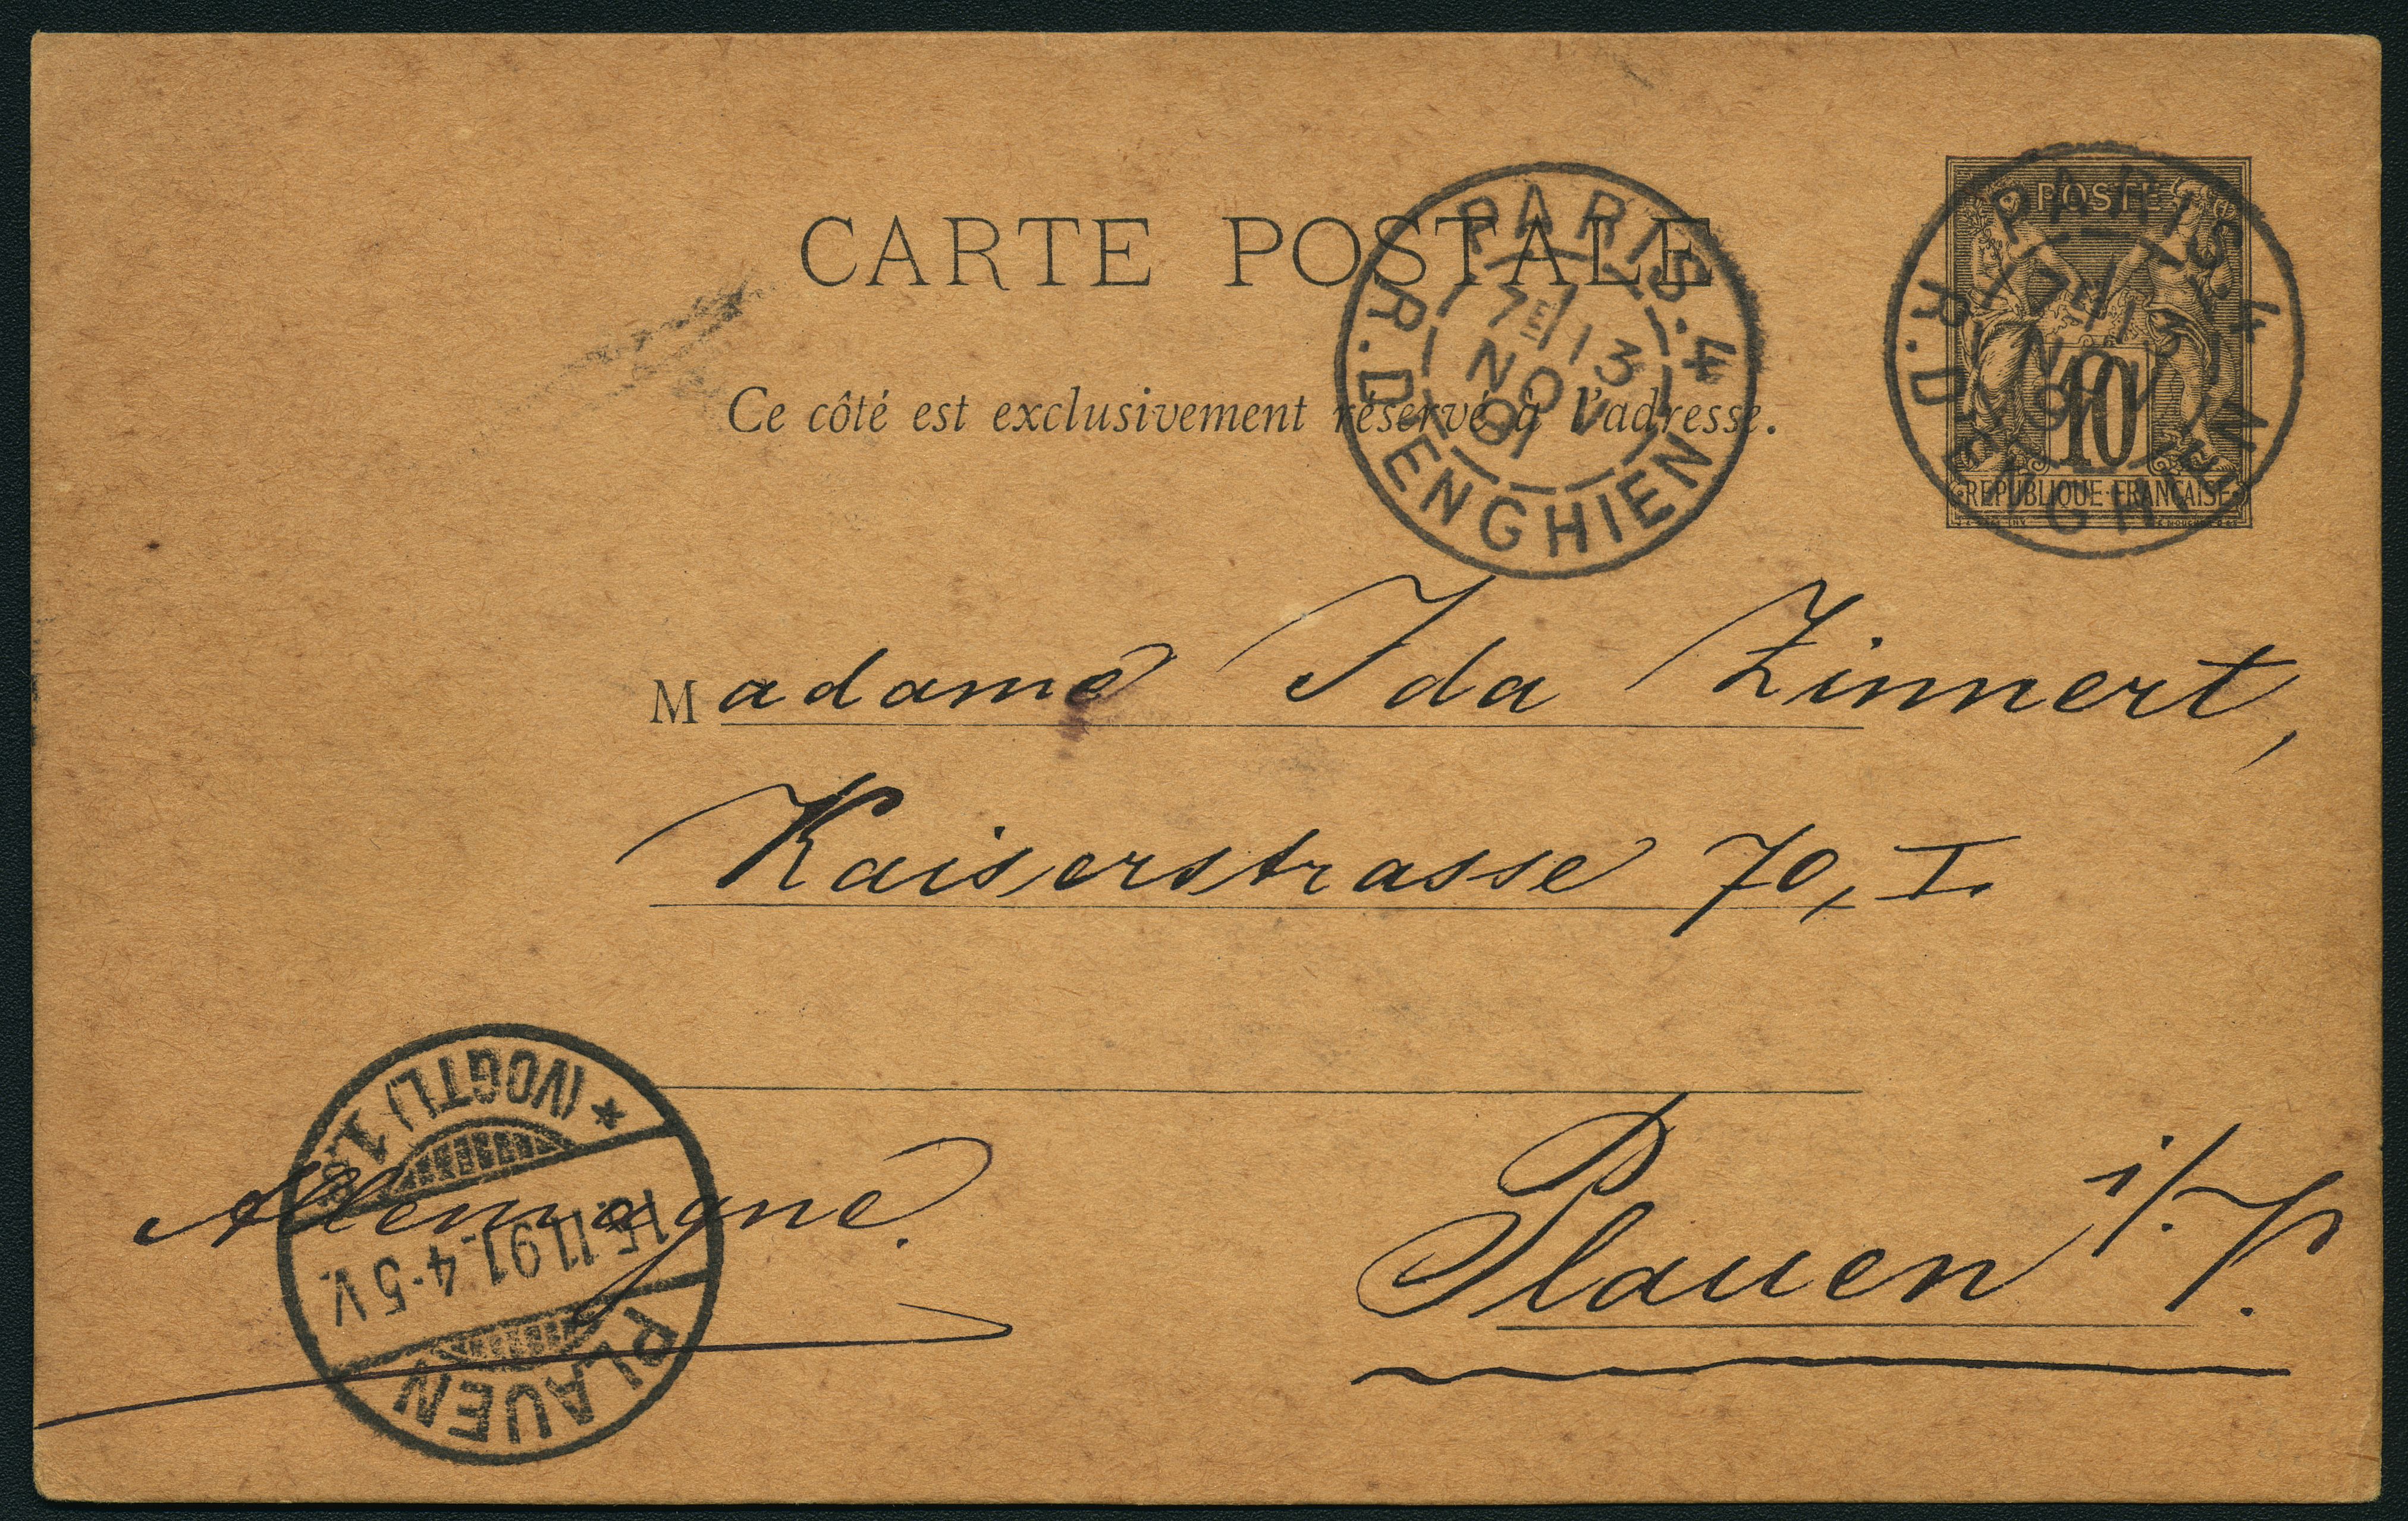 CARTE POSTALE
Ce côté est exclusivement réservé à l'adresse.
PARIS.4
7E/13
NOV
91
R. D'ENGHIEN
POSTE
10
REPUBLIQUE FRANÇAISE
PARIS.4
7E/13
NOV
91
R. D'ENGHIEN
Madame Ida Zinnert,
Kaiserstrasse 70, I.
Plauen i/.V.
Allemagne.
PLAUEN
15.11.91.4-5V.
* (VOGTL) 1.